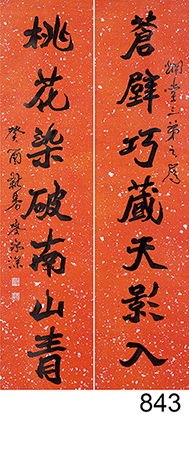 蒼壁巧藏天影入
桃花染破南山青
843